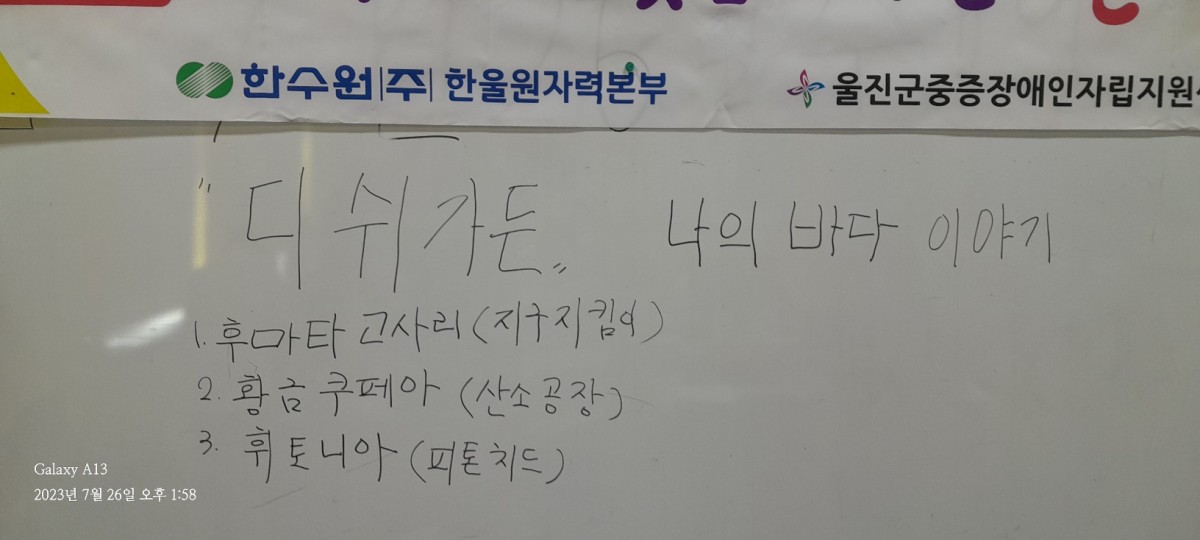 한수원(주) 한울원자력본부 울진군중증장애인자립지원
"디쉬가든" 나의 바다 이야기
1. 후마타 고사리 (지구지킴이)
2. 황금 쿠페아 (산소공장)
3. 휘토니아 (피톤치드)
Galaxy A13
2023년 7월 26일 오후 1:58